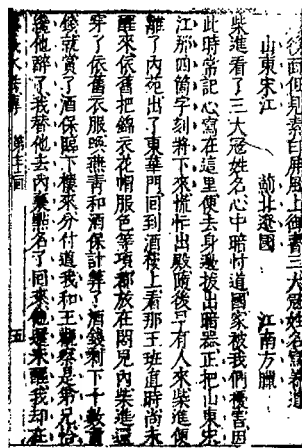 後面但見素白屏風上御書三大寇姓名寫着道
山東宋江　薊北遼國　江南方臘
柴進看了三大寇姓名心中暗忖道國家被我們擾害因
此時常記心寫在這里便去身邊拔出暗器正把山東宋
江那四箇字刻將下來慌忙出殿隨後早有人來柴進便
離了內苑出了東華門回到酒樓上看那王班直時尚未
醒來依舊把錦衣花帽服色等項都放在閣兒內柴進還
穿了依舊衣服喚燕青和酒保計算了酒錢剩下十數貫
錢就賞了酒保臨下樓來分付道我和王觀察是弟兄恰
後他醉了我替他去內裏點名了回來他還未醒我却在
水滸傳　回　五